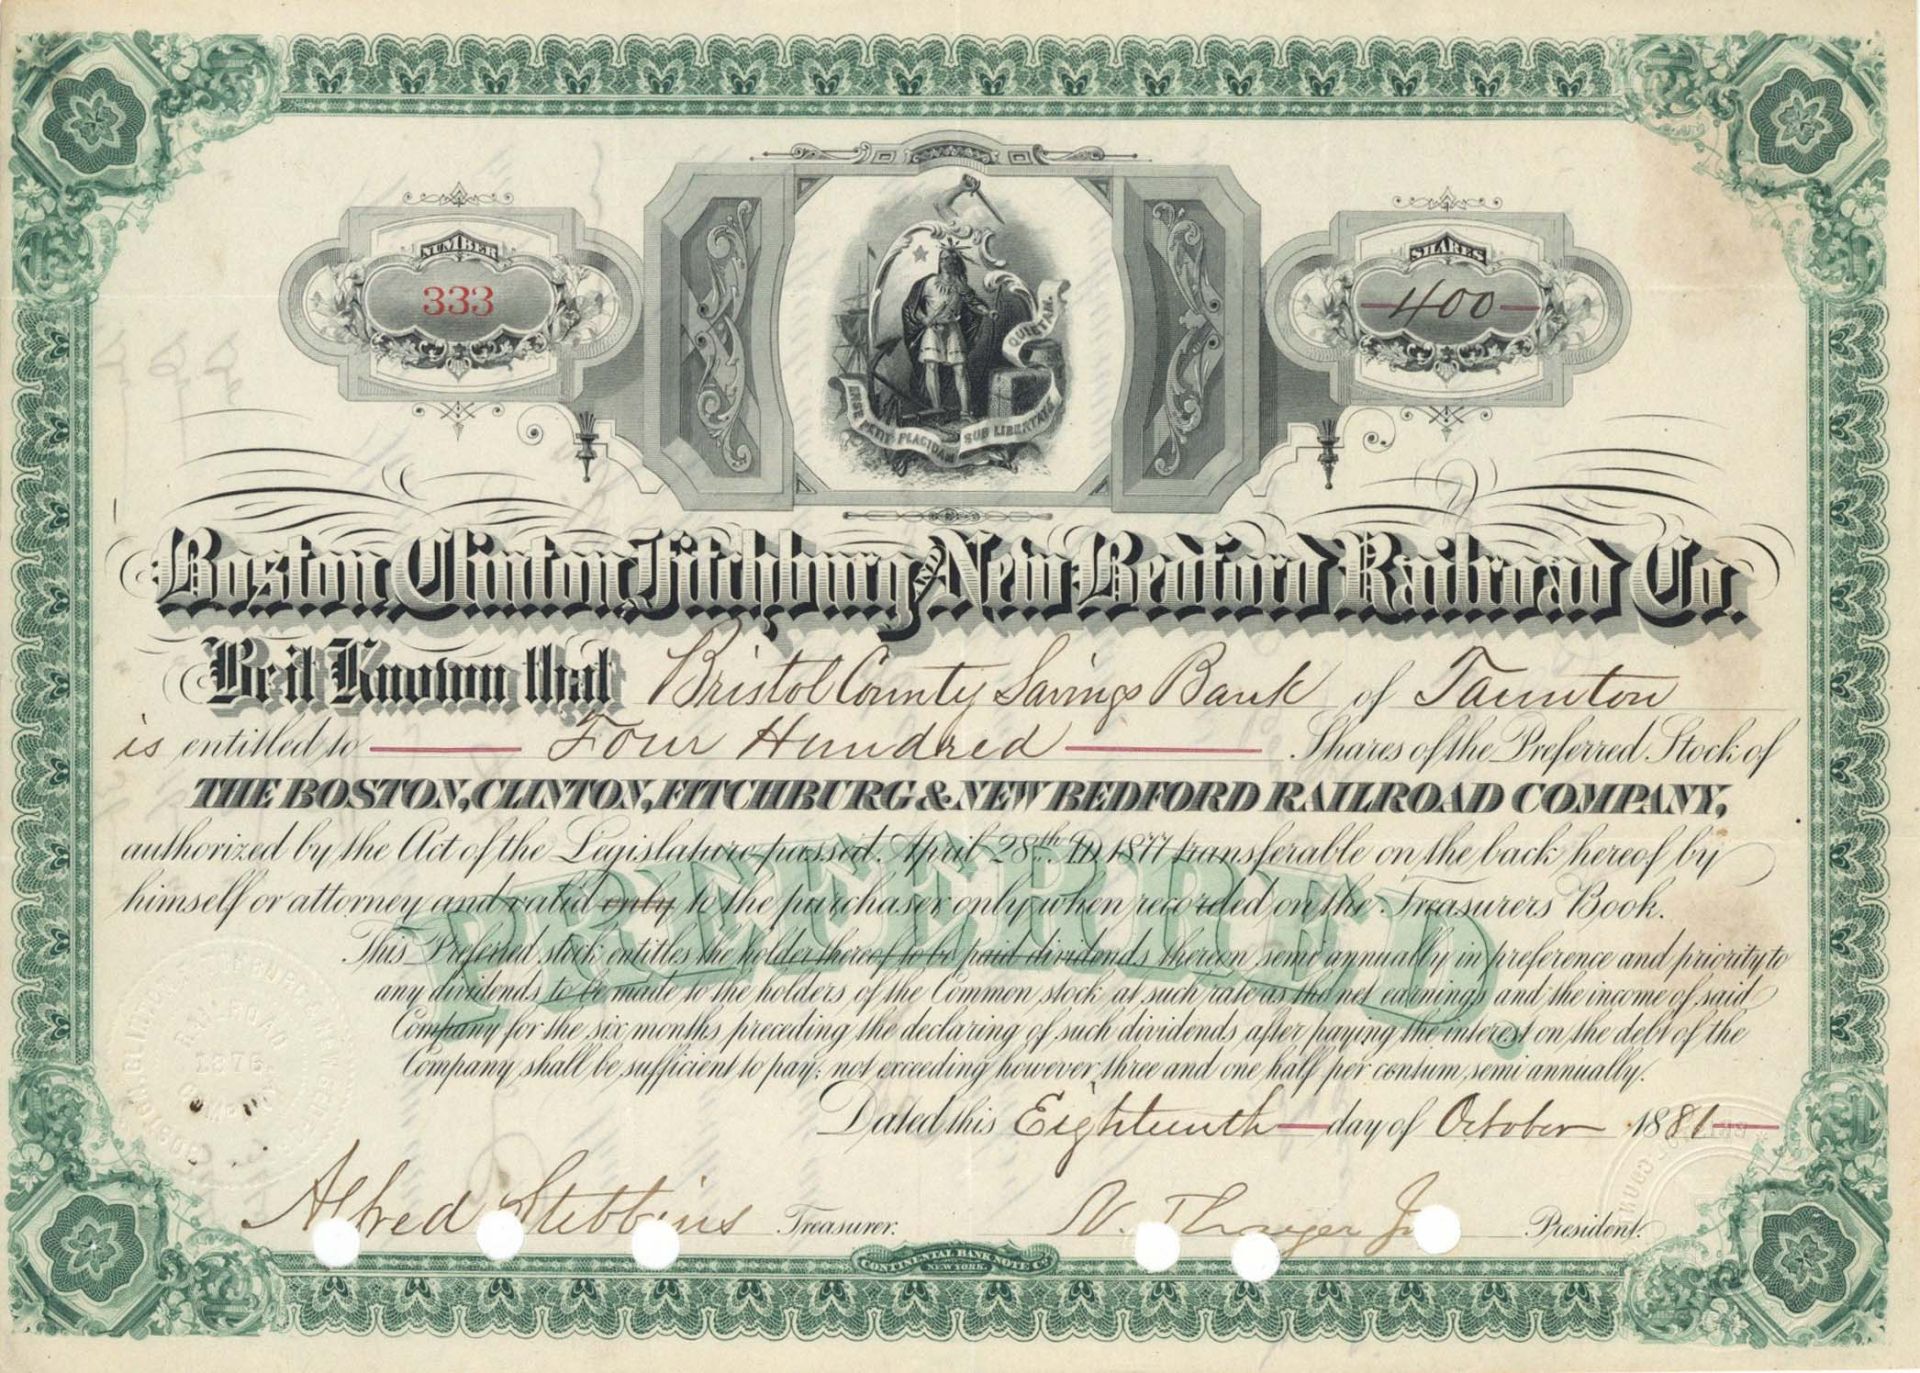 NUMBER
333
SHARES
400
QUIETAM
ENSE PETIT PLACIDAM SUB LIBERTATE
Boston, Clinton, Fitchburg AND New Bedford Railroad Co.
Be it Known that Bristol County Savings Bank of Taunton
is entitled to Four Hundred Shares of the Preferred Stock of
THE BOSTON, CLINTON, FITCHBURG & NEW BEDFORD RAILROAD COMPANY,
authorized by the Act of the Legislature passed April 28th AD 1877 transferable on the back hereof by
himself or attorney and valid only to the purchaser only when recorded on the Treasurers Book.
PREFERRED.
This Preferred stock entitles the holder thereof to be paid dividends thereon semi annually in preference and priority to
any dividends to be made to the holders of the Common stock at such rate as the net earnings and the income of said
Company for the six months preceding the declaring of such dividends after paying the interest on the debt of the
Company shall be sufficient to pay: not exceeding however three and one half per centum semi annually.
RAILROAD
1876.
Dated this Eighteenth day of October 1881
Alfred Stebbins Treasurer. N. Thayer Jr President.
CONTINENTAL BANK NOTE Co.
NEW YORK.